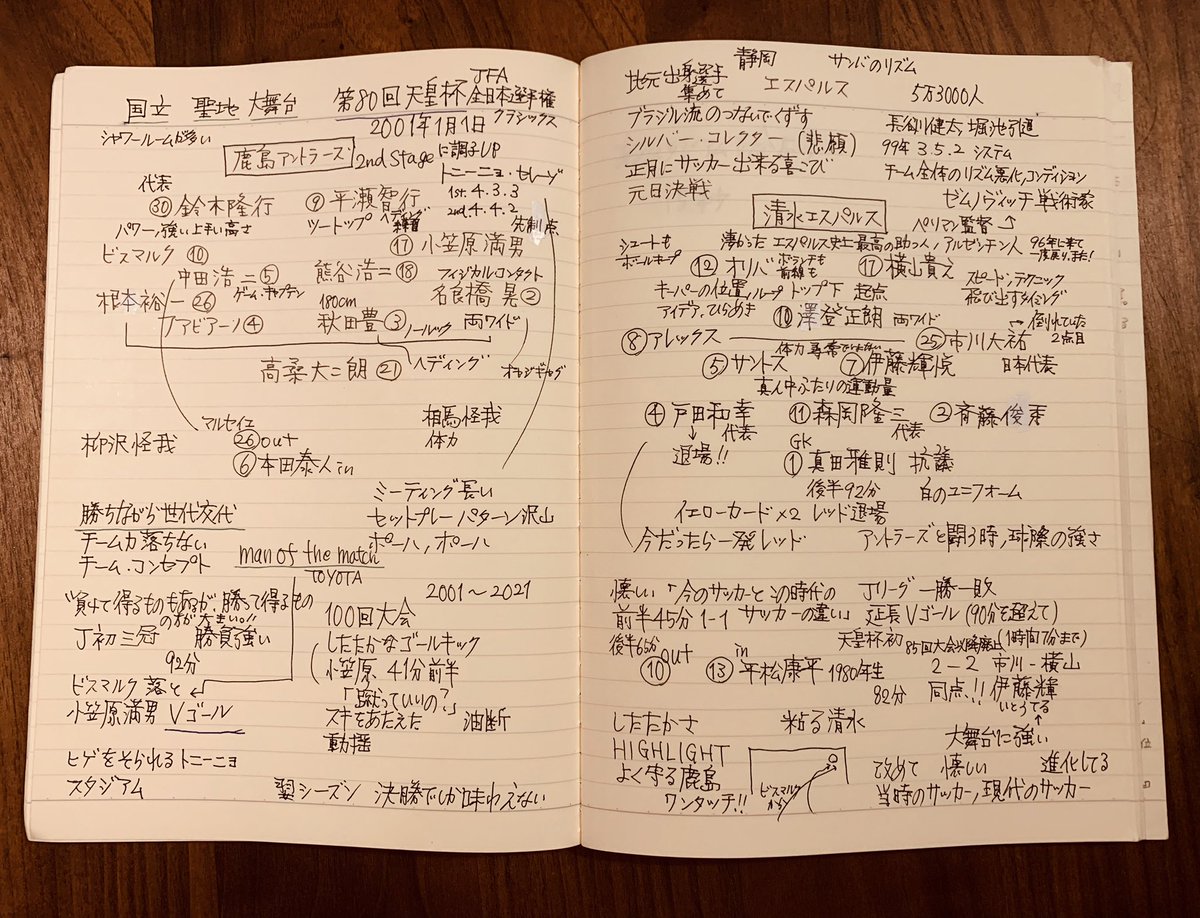 JFA
国立 聖地 大舞台 第80回天皇杯 全日本選手権
2001年1月1日 クラシックス
シャワールームが多い
鹿島アントラーズ 2nd Stageに調子UP
トニーニョ・セレーゾ
代表 1st. 4.3.3
2nd. 4.4.2
㉚鈴木隆行 ⑨平瀬智行
パワー、強い上手い高さ ツートップ ヘディング 先制点
ビスマルク⑩ ⑰小笠原満男
中田浩二⑤ 熊谷浩二⑱ フィジカルコンタクト
ゲーム・キャプテン 180cm 名良橋晃②
根本裕一㉖
ファビアーノ④ 秋田豊③ ノールック 両ワイド
ヘディング
高桑大二朗㉑
マルセイエ 相馬怪我
柳沢怪我 ㉖out 体力
⑥本田泰人in
ミーティング長い
勝ちながら世代交代 セットプレーパターン沢山
チーム力落ちない ポーハ, ポーハ
チーム・コンセプト man of the match
TOYOTA
2001〜2021
"負けて得るものもあるが、勝って得るものの方が大きい!!"
100回大会
J初三冠 勝負強い したたかなゴールキック
92分 小笠原 41分前半
ビスマルク落と 「蹴っていいの?」
小笠原満男 Vゴール スキをあたえた 油断
動揺
ヒゲをそられるトニーニョ
スタジアム 翌シーズン 決勝でしか味わえない
静岡 サンバのリズム
地元出身選手集めて エスパルス 5万3000人
ブラジル流のつないでくずす 長谷川健太, 堀池引退
シルバー・コレクター (悲願) 99年 3.5.2 システム
正月にサッカー出来る喜こび チーム全体のリズム悪化, コンディション
元日決戦 ゼムノヴィッチ戦術家
清水エスパルス ペリマン監督
シュートもボールキープ 凄かった エスパルス史上最高の助っ人, アルゼンチン人 96年に来て一度戻り、また!
⑫オリバ ボランチも前線も ⑰横山貴之 スピード、テクニック
キーパーの位置, ループ トップ下 起点 飛び出すタイミング
アイデア, ひらめき ⑩澤登正朗 両ワイド ←倒れていた
2点目
⑧アレックス 体力尋常でなない ㉕市川大祐
⑤サントス ⑦伊藤輝悦 日本代表
真人中ふたりの運動量
④戸田和幸 ⑪森岡隆三 ②斉藤俊秀
代表 代表
退場!! GK
①真田雅則 抗議
後半92分 白のユニフォーム
イエローカード×2 レッド退場
今だったら一発レッド アントラーズと闘う時, 球際の強さ
懐しい「今のサッカーとこの時代のサッカーの違い」 Jリーグ一勝一敗
前半45分 1-1 延長Vゴール (90分を超えて)
後半65分 天皇杯初 85回大会以降廃止 (1時間7分まで)
⑩out ⑬in 平松康平 1980年生 2-2 市川-横山
82分 同点!! 伊藤輝
いとうてる
したたかさ 粘る清水
大舞台に強い
HIGHLIGHT
よく守る鹿島 改めて 懐しい 進化してる
ワンタッチ!! ビスマルクから 当時のサッカー, 現代のサッカー